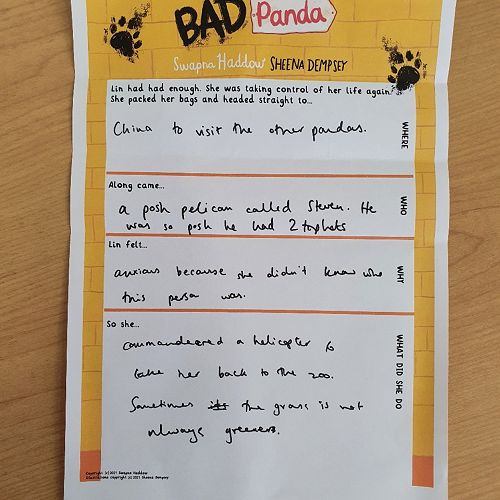 BAD Panda
Swapna Haddow SHEENA DEMPSEY
Lin had had enough. She was taking control of her life again.
She packed her bags and headed straight to...
China to visit the other pandas.
WHERE
Along came...
a posh pelican called Steven. He
was so posh he had 2 tophats
WHO
Lin felt...
anxious because she didn't know who
this person was.
WHY
So she...
commandeered a helicopter to
take her back to the zoo.
Sometimes its the grass is not
always greener.
WHAT DID SHE DO
Copyright (c) 2021 Swapna Haddow
Illustrations copyright (c) 2021 Sheena Dempsey